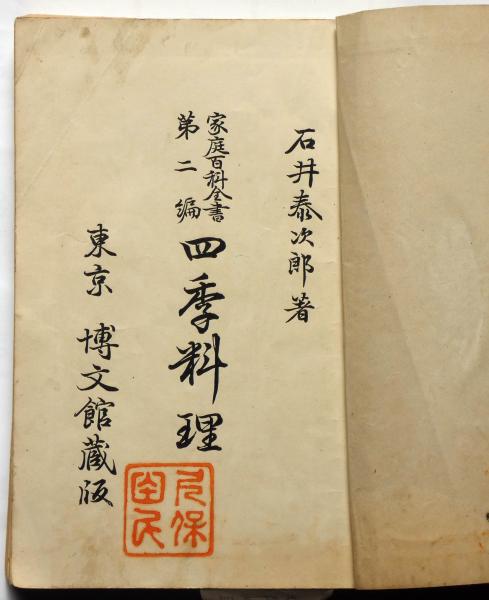 石井泰次郎著
家庭百科全書
第二編
四季料理
東京 博文館蔵版